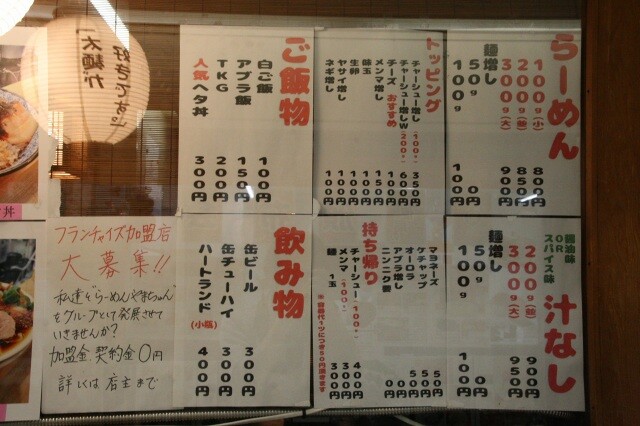 らーめん
100g(小) 800円
200g(並) 850円
300g(大) 900円
麺増し
50g 0円
100g 100円
トッピング
チャーシュー増し(100g) 350円
チャーシュー増しW 200g 600円
チーズ おすすめ 100円
メンマ増し 150円
味玉 100円
生卵 100円
ヤサイ増し 100円
ネギ増し 100円
ご飯物
白ご飯 100円
アブラ飯 150円
TKG 200円
人気 ヘタ丼 300円
醤油味
OR
スパイス味
汁なし
200g(並) 900円
300g(大) 950円
麺増し
50g 0円
100g 100円
マヨネーズ 50円
ケチャップ 50円
オーロラ 50円
アブラ増し 0円
ニンニク醤 0円
持ち帰り
チャーシュー(100g) 400円
メンマ(100g) 300円
麺 1玉
※容器代1つにつき50円頂きます
飲み物
缶ビール 300円
缶チューハイ 300円
ハートランド(小瓶) 400円
フランチャイズ加盟店
大募集!!
私達と"らーめんやまちゃん"
をグループとして発展させて
いきませんか?
加盟金 契約金0円
詳しくは 店主まで
太麺が
好きです。
丼